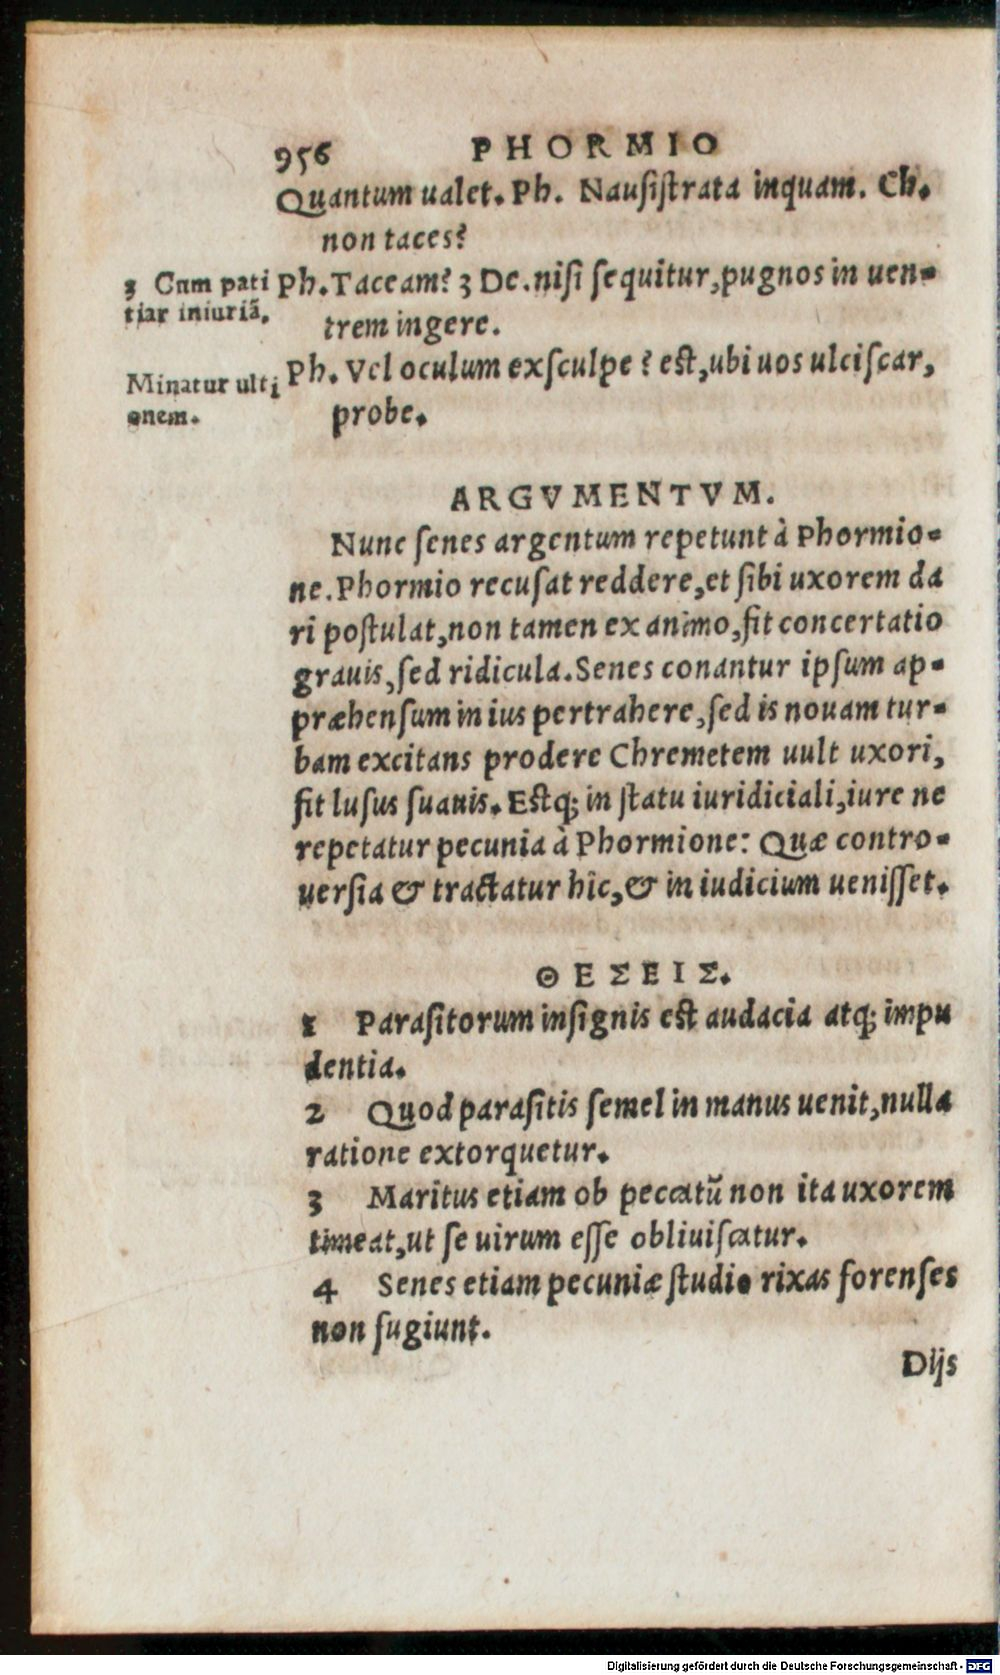 956 PHORMIO
Quantum ualet. Ph. Nauſiſtrata inquam. Ch.
non taces?
3 Cum pati
tiar iniuriā.
Ph. Taceam? 3 De. niſi ſequitur, pugnos in uen-
trem ingere.
Minatur ulti
onem.
Ph. Vel oculum exſculpe? est, ubi uos ulciſcar,
probe.
ARGVMENTVM.
Nunc ſenes argentum repetunt à Phormio-
ne. Phormio recuſat reddere, et ſibi uxorem da
ri poſtulat, non tamen ex animo, fit concertatio
grauis, ſed ridicula. Senes conantur ipſum ap-
præhenſum in ius pertrahere, ſed is nouam tur-
bam excitans prodere Chremetem uult uxori,
fit luſus ſuauis. Estq; in ſtatu iuridiciali, iure ne
repetatur pecunia à Phormione: Quæ contro-
uerſia & tractatur hîc, & in iudicium ueniſſet.
ΘΕΣΕΙΣ.
1 Paraſitorum inſignis est audacia atq; impu
dentia.
2 Quod paraſitis ſemel in manus uenit, nulla
ratione extorquetur.
3 Maritus etiam ob peccatũ non ita uxorem
timeat, ut ſe uirum eſſe obliuiſcatur.
4 Senes etiam pecuniæ ſtudio rixas forenſes
non fugiunt.
Dijs
Digitalisierung gefördert durch die Deutsche Forschungsgemeinschaft - DFG